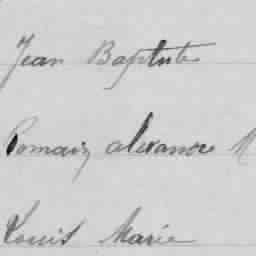 Jean Baptiste
Romain alexandre
Louis Marie